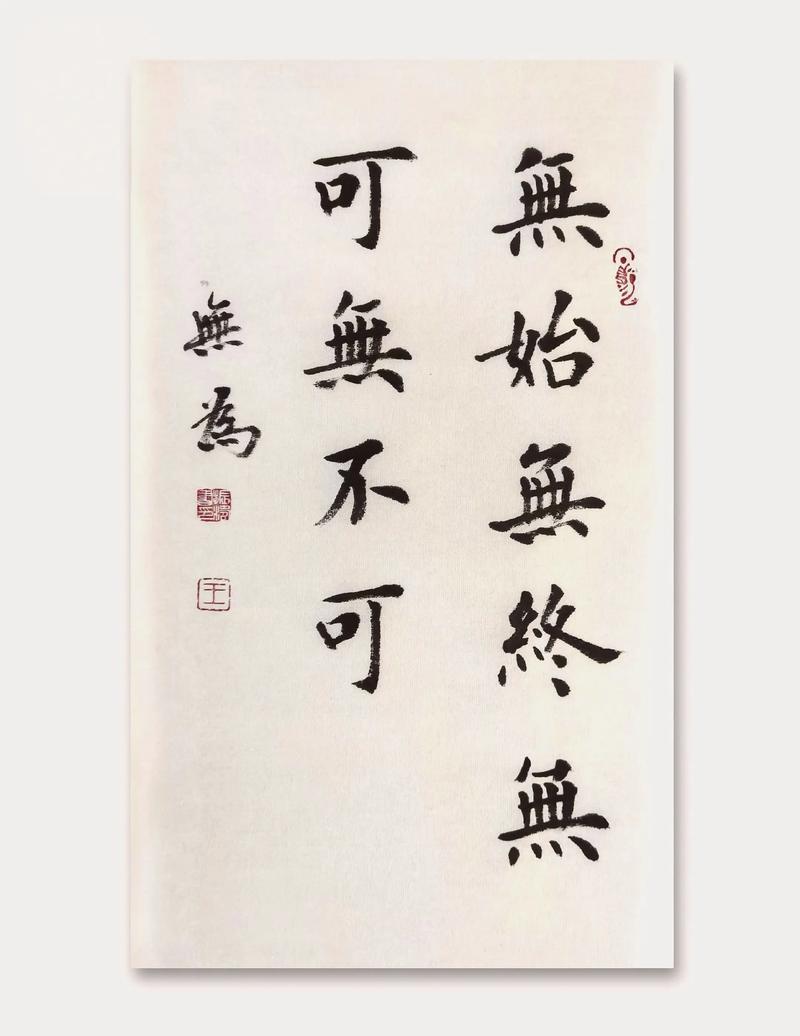 無始無終無
可無不可
無為